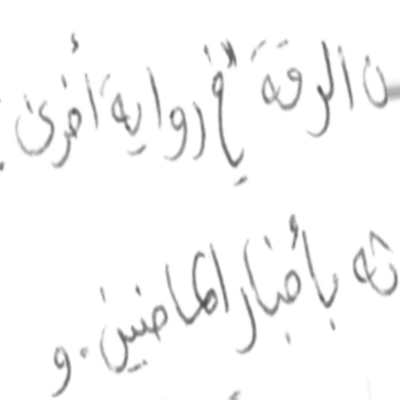 ن الرقة في رواية أخرى
ثه بأخبار الماضيين. و